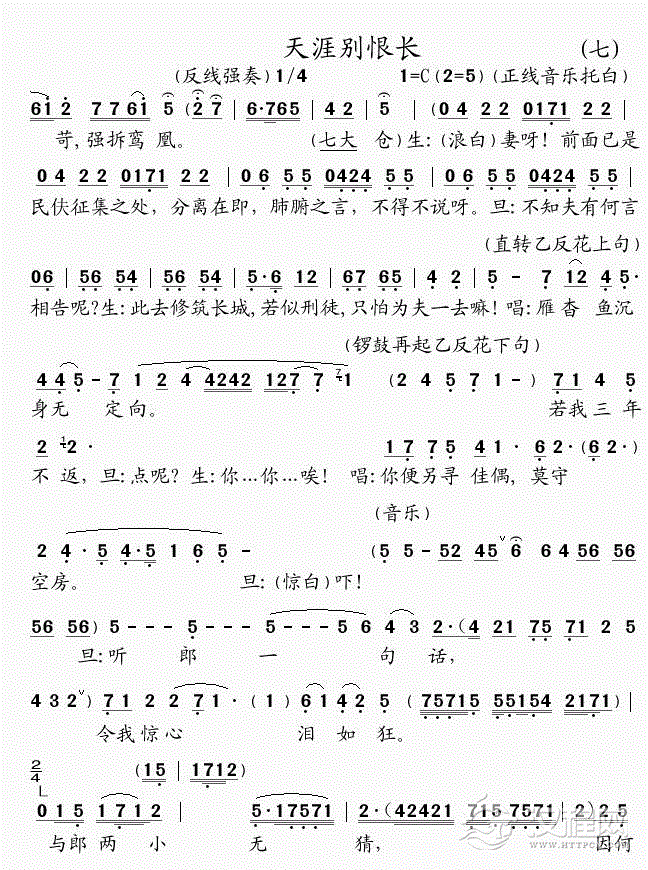 天涯别恨长 (七)
(反线强奏)1/4 1=C(2=5)(正线音乐托白)
6i2 776i 5 (27 | 6·765 | 42 | 5 )(04 22 0171 22 |
苛,强拆鸾 凰。 (七大 仓)生:(浪白)妻呀!前面已是
04 22 0171 22 | 06 55 0424 55 | 06 55 0424 55 |
民伕征集之处,分离在即,肺腑之言,不得不说呀。旦:不知夫有何言
(直转乙反花上句)
06 | 56 54 | 56 54 | 5·6 12 | 67 65 | 42 | 5 - 7 12 45·
相告呢?生:此去修筑长城,若似刑徒,只怕为夫一去嘛!唱:雁杳 鱼沉
(锣鼓再起乙反花下句)
445 - 7 1 2 4 4242 127 7 71 (2 4 5 7 1 -) 71 4 5
身无 定向。 若我三年
2 12· 17 75 41· 62·(62·)
不 返,旦:点呢?生:你…你…唉! 唱:你便另寻 佳偶,莫守
(音乐)
2 4·5 4·5 1 6 5 - (5 - 52 45ˇ6 6 4 56 56
空房。 旦:(惊白)吓!
56 56) 5 - - - 5 - - - - - 5 6 4 3 2·(4 21 75 71 2 5
旦:听 郎 一 句 话,
4 3 2ˇ) 71 2 2 71·(1) 6142 5 (75715 55154 2171) |
令我惊心 泪如狂。
2/4 (15 | 1712)
015 1712 | 5·17571 | 2·(42421 715 7571 | 2) 25
与郎两小 无 猜, 因何
汉程网
HTTPCN.COM